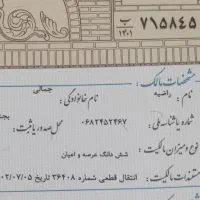 ۷۱۵۸۴۵ ب
۱۴۰۱
مشخصات مالک:
نام: راضیه نام خانوادگی: جمالی
شماره یا شناسه ملی: ۰۶۸۲۴۵۲۴۶۷ محل صدور یا ثبت: بجنـ
نوع و میزان مالکیت: شش دانگ عرصه و اعیان
مستندات مالکیت: انتقال قطعی شماره ۳۶۴۰۸ تاریخ ۰۲/۰۷/۰۵